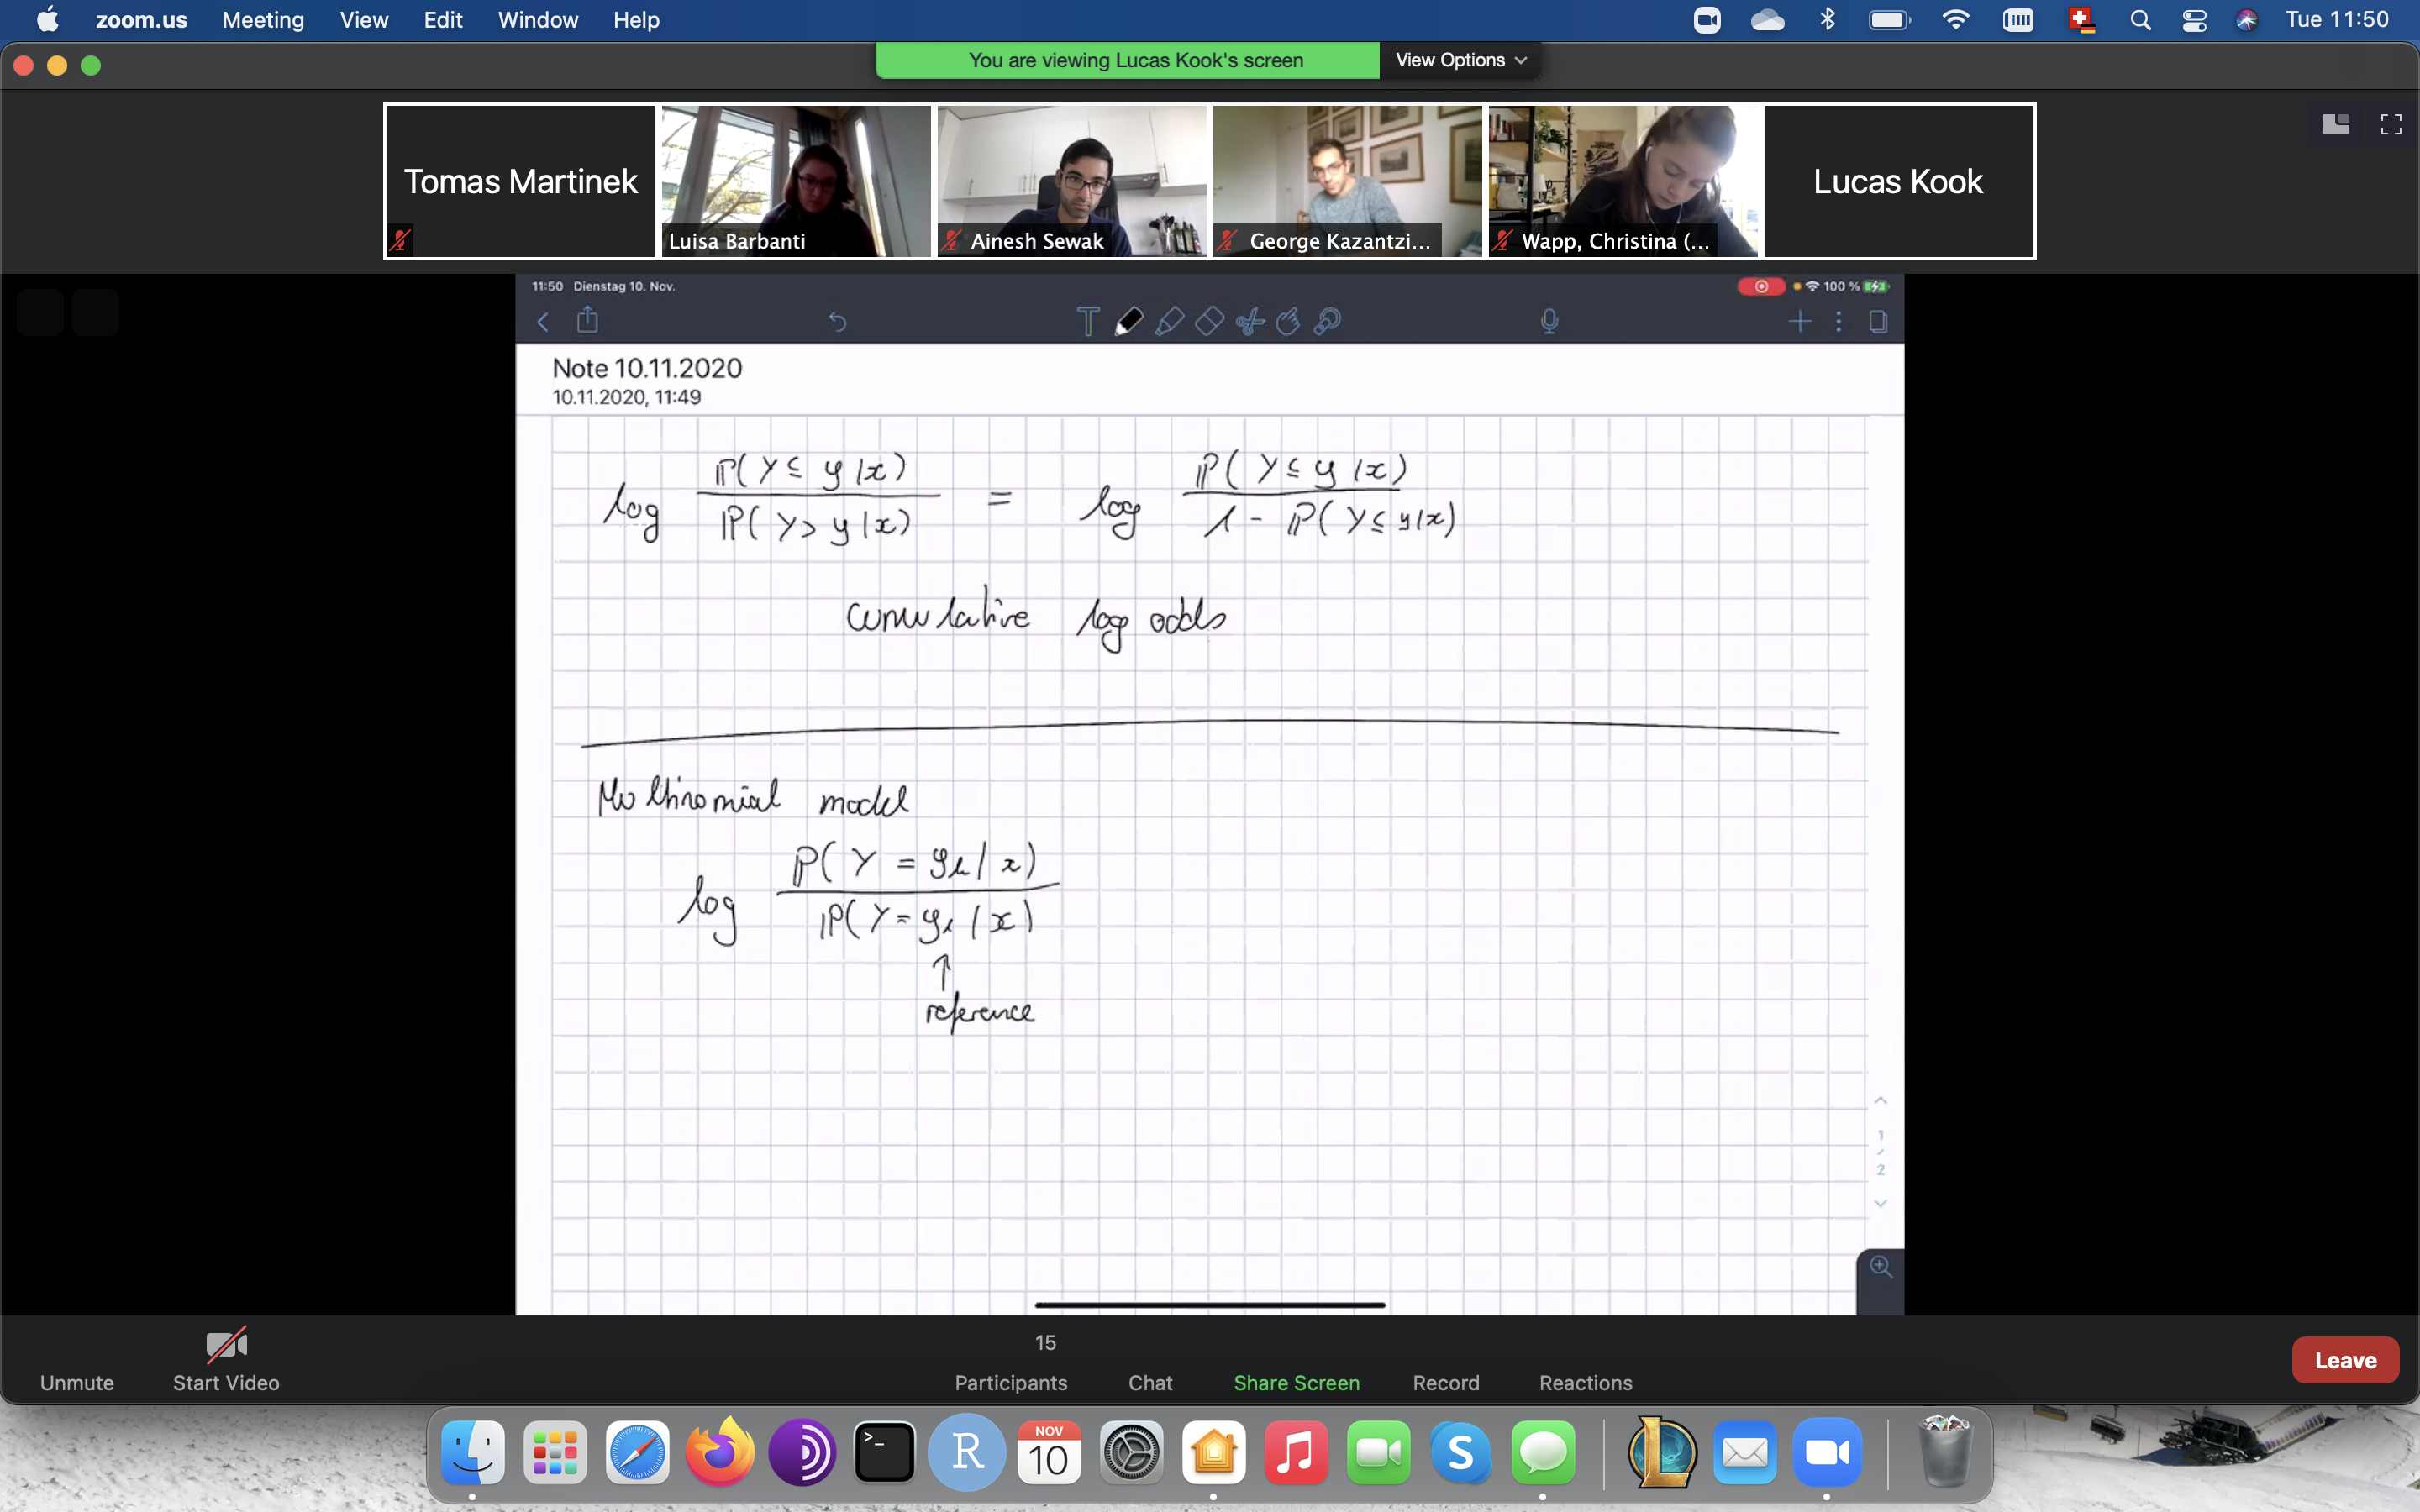 zoom.us Meeting View Edit Window Help Tue 11:50
You are viewing Lucas Kook's screen View Options
Tomas Martinek
Luisa Barbanti
Ainesh Sewak
George Kazantzi...
Wapp, Christina (...
Lucas Kook
11:50 Dienstag 10. Nov. 100 %
Note 10.11.2020
10.11.2020, 11:49
log P(Y ≤ y | x) / P(Y > y | x) = log P(Y ≤ y | x) / 1 - P(Y ≤ y | x)
cumulative log odds
Multinomial model
log P(Y = yk | x) / P(Y = y1 | x)
↑
reference
1
/
2
15
Unmute Start Video Participants Chat Share Screen Record Reactions Leave
>_ R NOV
10 S L